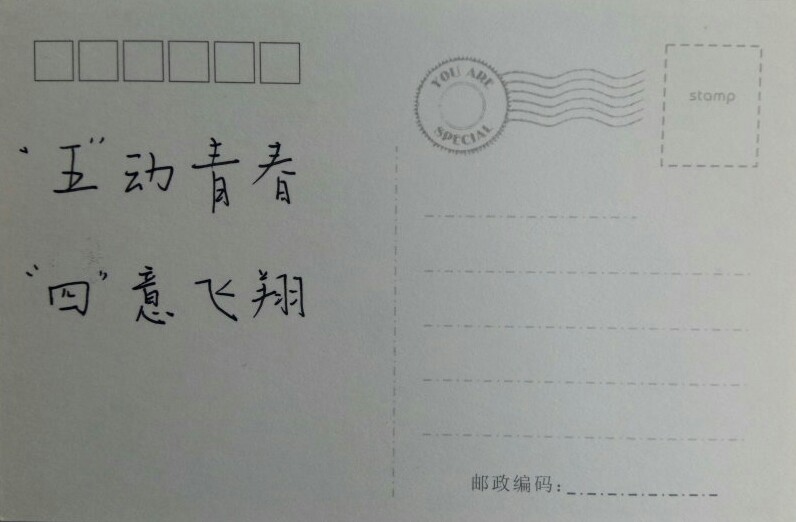 YOU ARE
SPECIAL
stamp
“五”动青春
“四”意飞翔
邮政编码: